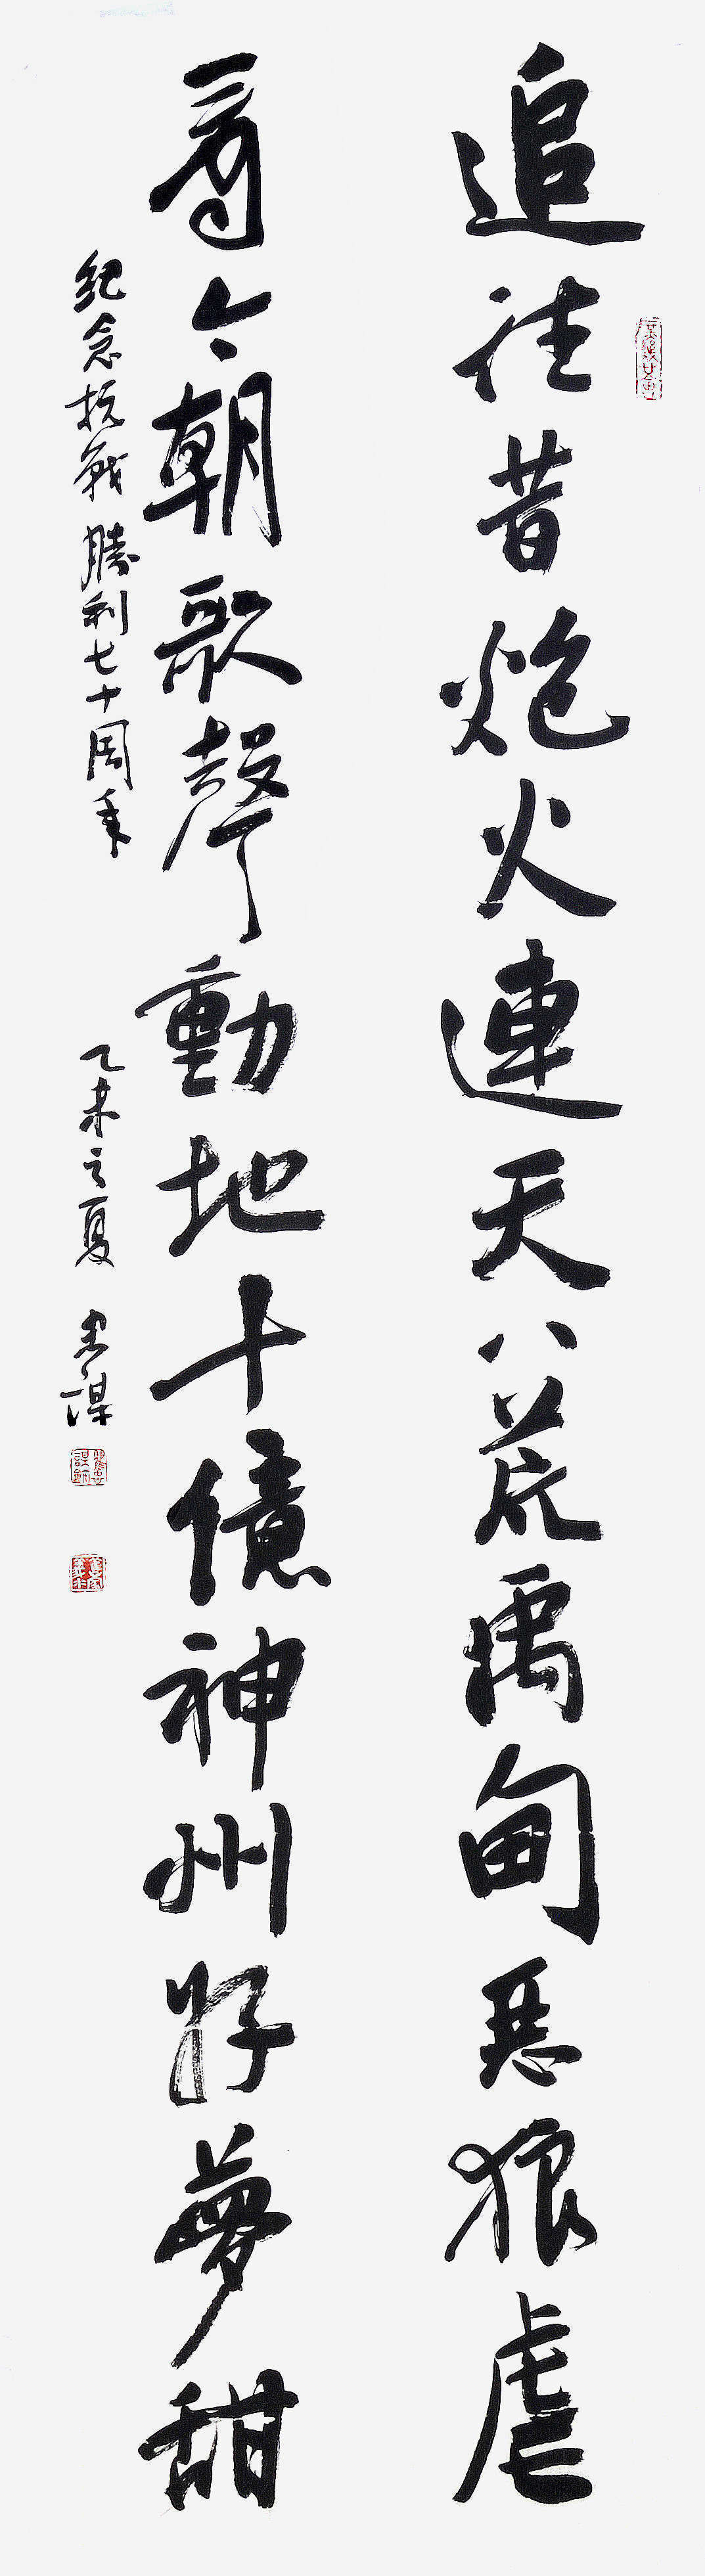 追往昔炮火連天八荒禹甸惡狼虐
看今朝歌聲動地十億神州好夢甜
紀念抗戰勝利七十周年 乙未之夏